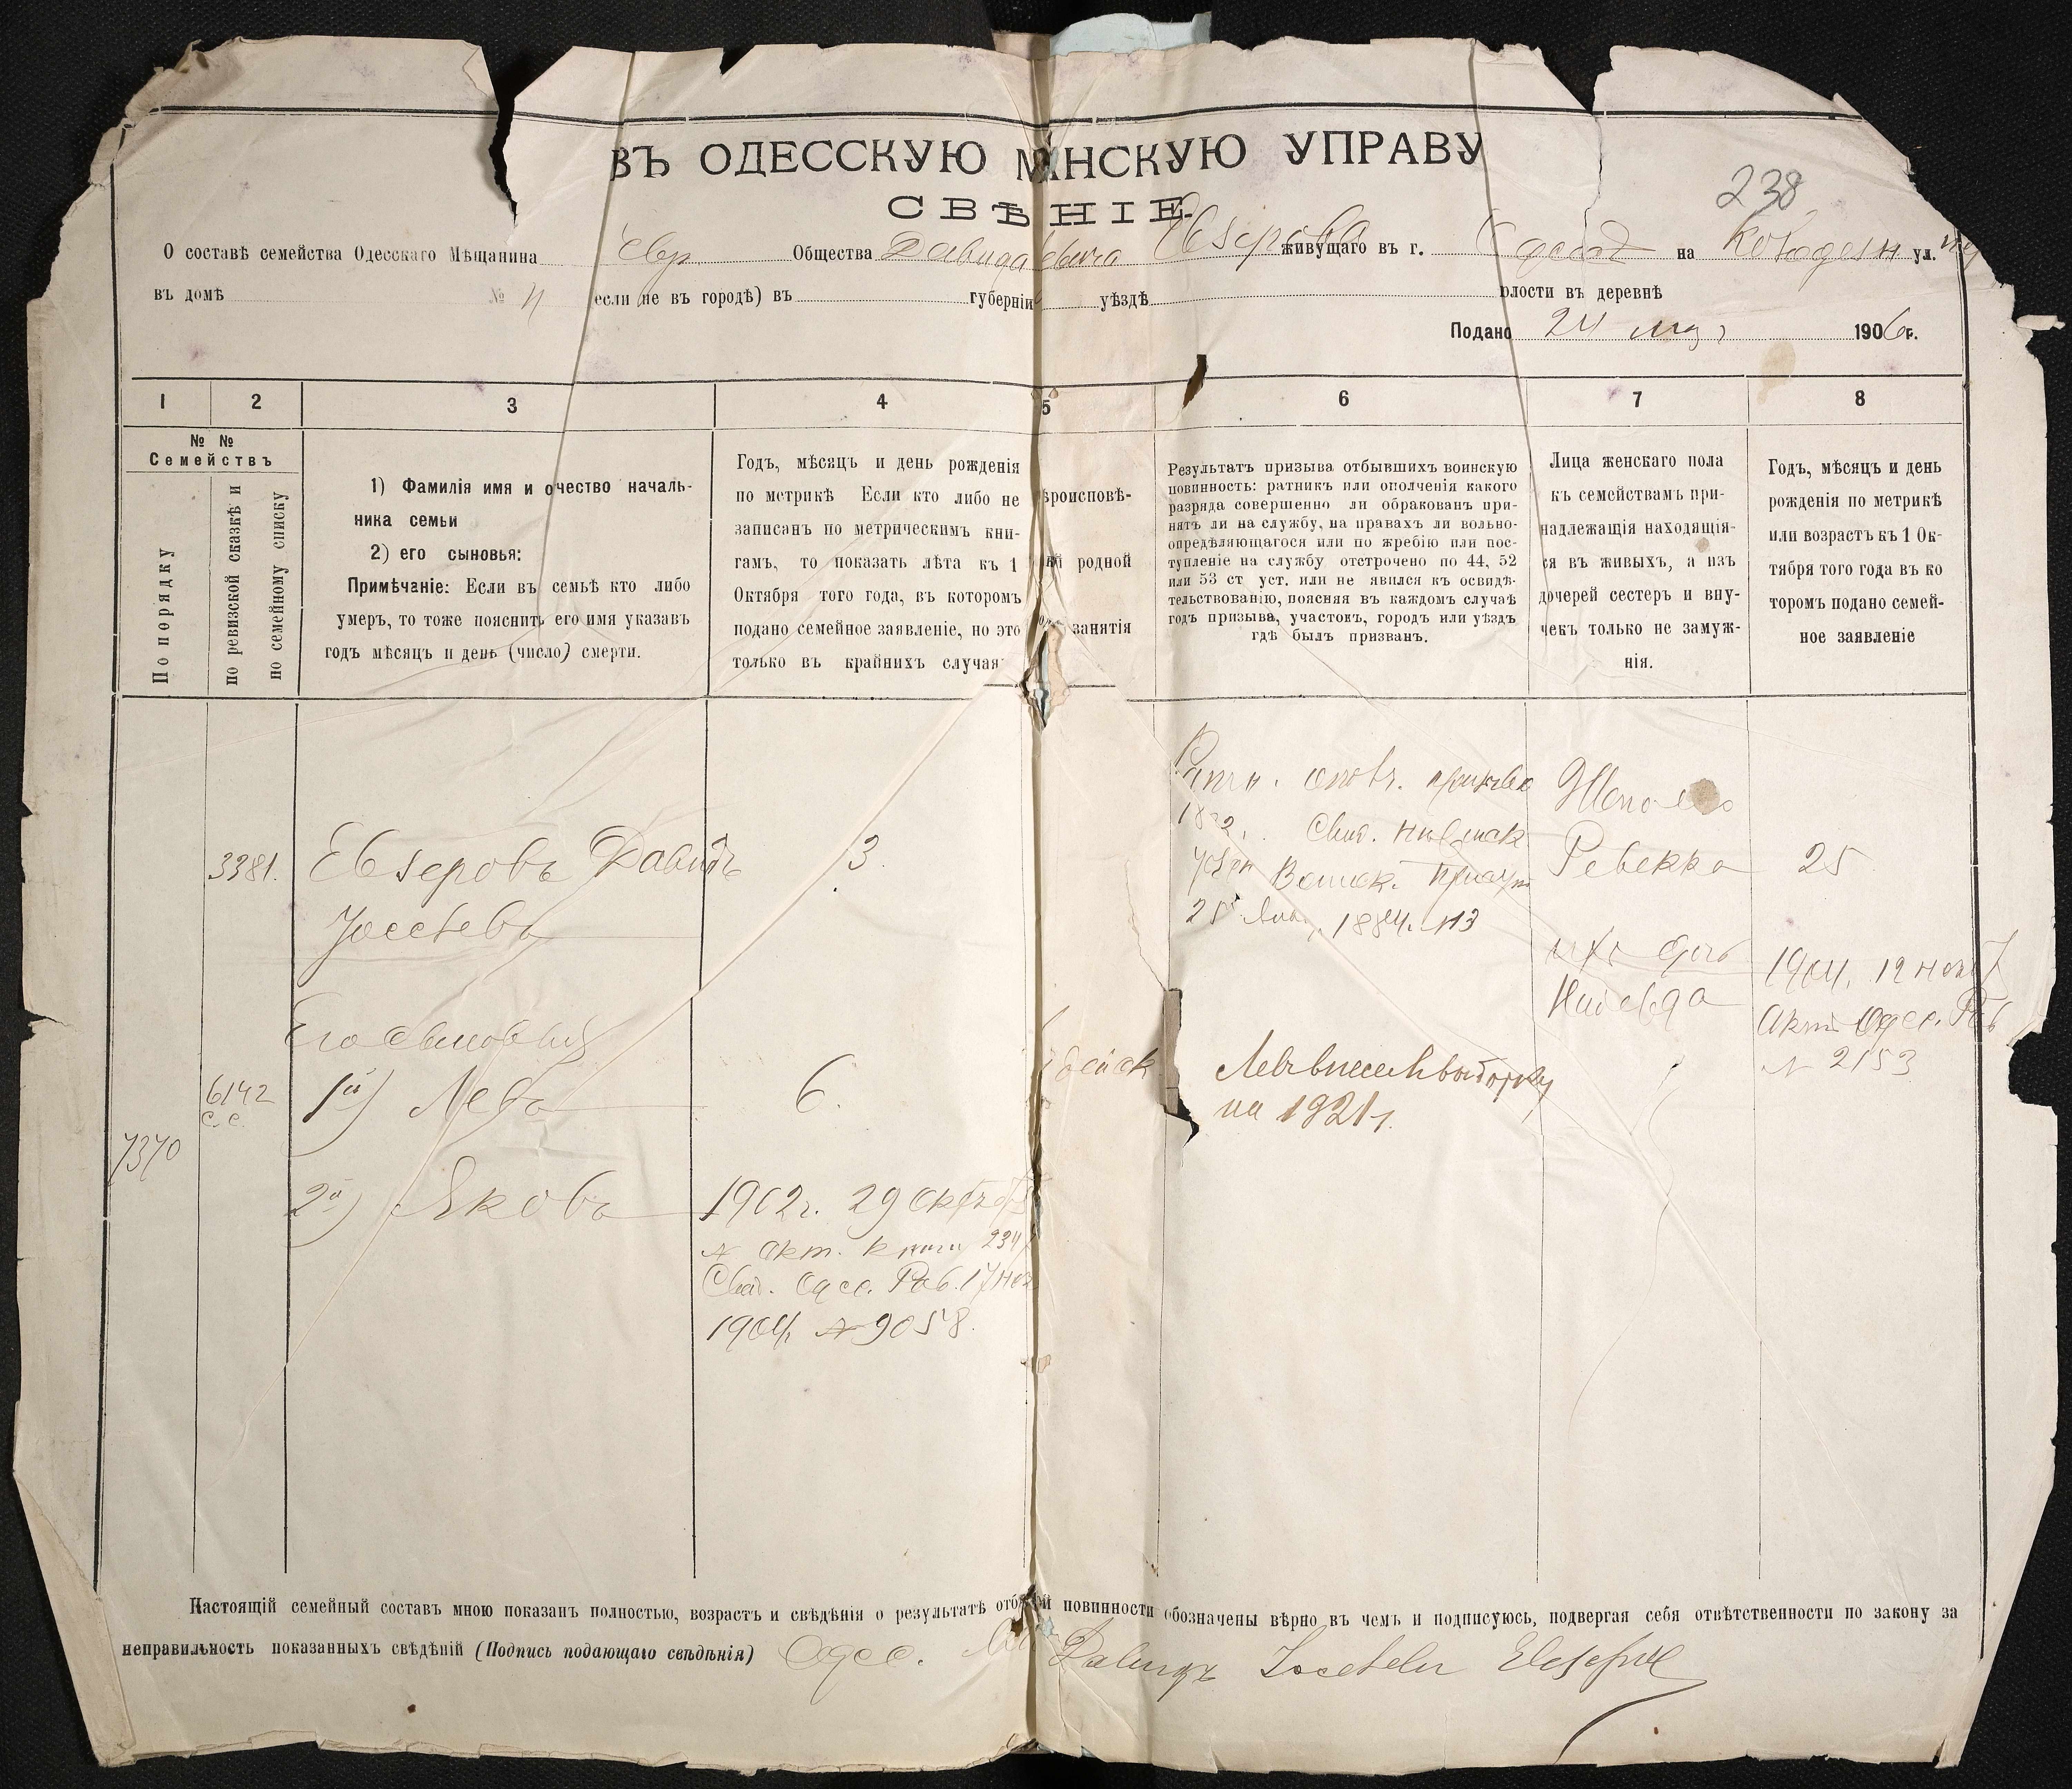 ВЪ ОДЕССКУЮ М НСКУЮ УПРАВУ
238
СВѢ НІЕ
О составѣ семейства Одесскаго Мѣщанина Евр Общества Давида Евзерова живущаго въ г. Одессѣ на Колодезн ул.
въ домѣ № 11 если не въ городѣ) въ губерніи уѣздѣ олости въ деревнѣ
Подано 24 1906 г.
1 2 3 4 5 6 7 8
№ №
Семействъ
По порядку
по ревизской сказкѣ и
по семейному списку
1) Фамилія имя и очество началь-
ника семьи
2) его сыновья:
Примѣчаніе: Если въ семьѣ кто либо
умеръ, то тоже пояснить его имя указавъ
годъ мѣсяцъ и день (число) смерти.
Годъ, мѣсяцъ и день рожденія
по метрикѣ Если кто либо не
записанъ по метрическимъ кни-
гамъ, то показать лѣта къ 1
Октября того года, въ которомъ
подано семейное заявленіе, но это
только въ крайнихъ случая
ѣроисповѣ-
родной
занятія
Результатъ призыва отбывшихъ воинскую
повинность: ратникъ или ополченія какого
разряда совершенно ли обракованъ при-
нятъ ли на службу, на правахъ ли вольно-
опредѣляющагося или по жребію или пос-
тупленіе на службу отстрочено по 44, 52
или 53 ст. уст. или не явился къ освидѣ-
тельствованію, поясняя въ каждомъ случаѣ
годъ призыва, участокъ, городъ или уѣздъ
гдѣ былъ призванъ.
Лица женскаго пола
къ семействамъ при-
надлежащія находящія-
ся въ живыхъ, а изъ
дочерей сестеръ и вну-
чекъ только не замуж-
нія.
Годъ, мѣсяцъ и день
рожденія по метрикѣ
или возрастъ къ 1 Ок-
тября того года въ ко
торомъ подано семей-
ное заявленіе
3381. Евзеровъ Давидъ
Іосевевъ
3
Ратн. опол. призыва
Свид.
Воинск. Присут
1884. №13
Жена его
Ревекка 25
ихъ дочь
Надежда
1904. 12
Акт Одес. Рав
№ 2153
Его сыновья
6142
с.с.
1й) Левъ 6.
Левъ внесенъ въ выборку
на 1921 г.
7370
2й) Яковъ 1902 г. 29 Октяб
№ акт. книги 234
Свид. Одес. Рав. 17
1904. № 9058.
Настоящій семейный составъ мною показанъ полностью, возрастъ и свѣдѣнія о результатѣ отб й повинности обозначены вѣрно въ чемъ и подписуюсь, подвергая себя отвѣтственности по закону за
неправильность показанныхъ свѣдѣній (Подпись подающаго свѣдѣнія) Одес. Давидъ